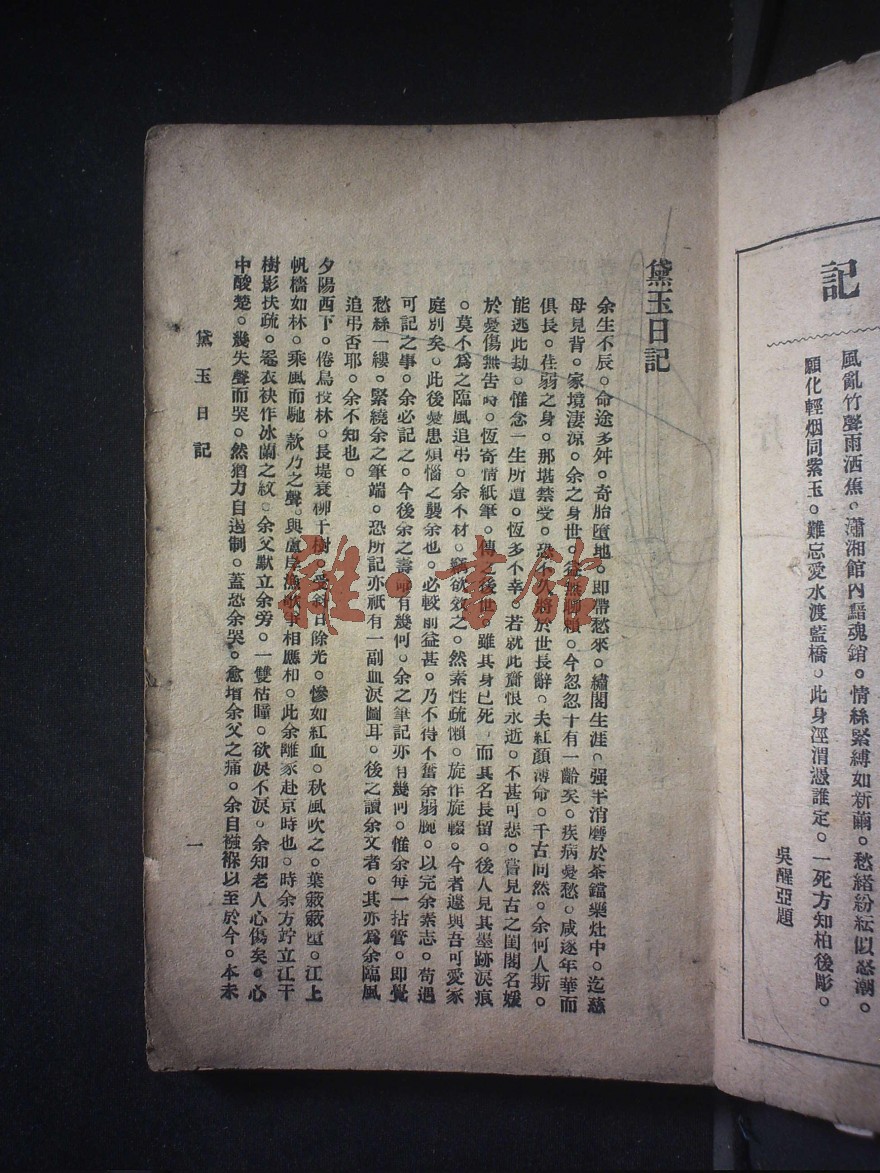 記
風亂竹聲雨洒蕉。瀟湘館內黯魂銷。情絲緊縛如新繭。愁緒紛紜似怒潮。
願化輕烟同紫玉。難忘愛水渡藍橋。此身涇渭憑誰定。一死方知柏後彫。
吳醒亞題
黛玉日記
余生不辰。命途多舛。奇胎墮地。即帶愁來。繡閣生涯。强半消磨於茶鐺藥灶中。迄慈
母見背。家境淒凉。余之身世。益無聊賴。今忽忽十有一齡矣。疾病憂愁。咸逐年華而
俱長。荏弱之身。那堪禁受。恐不久將於世長辭。夫紅顏薄命。千古同然。余何人斯。
能逃此劫。惟念一生所遭。恆多不幸。若就此齎恨永逝。不甚可悲。嘗見古之閨閣名媛
於憂傷無告時。恆寄情紙筆。傳之後世。雖其身已死。而其名長留。後人見其墨跡淚痕
。莫不爲之臨風追弔。余不材。竊欲效之。然素性疏懶。旋作旋輟。今者遽與吾可愛家
庭別矣。此後憂患煩惱之襲余也。必較前益甚。乃不得不奮余弱腕。以完余素志。苟遇
可記之事。余必記之。今後余之壽命有幾何。余之筆記亦有幾何。惟余每一拈管。即覺
愁絲一縷。緊繞余之筆端。恐所記亦祇有一副血淚圖耳。後之讀余文者。其亦爲余臨風
追弔否耶。余不知也。
夕陽西下。倦鳥投林。長堤衰柳千樹。受斜日餘光。慘如紅血。秋風吹之。葉簌簌墮。江上
帆檣如林。乘風而馳。欵乃之聲。與蘆岸漁歌。相應和。此余離家赴京時也。時余方竚立江干
樹影扶疏。罨衣袂作冰蘭之紋。余父默立余旁。一雙枯瞳。欲淚不淚。余知老人心傷矣。心
中酸楚。幾失聲而哭。然猶力自遏制。蓋恐余哭。愈增余父之痛。余自襁褓以至於今。本未
黛玉日記
一
雜書館